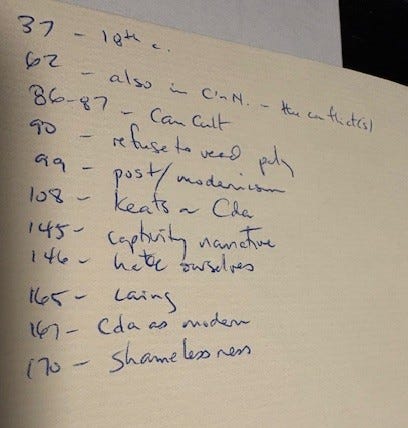 37 - 18th c.
62 - also in C'n N. - the conflict(s)
86-87 - Can Cult
90 - refuse to read poly
99 - post/modernism
108 - Keats on Cda
145 - captivity narrative
146 - hate ourselves
165 - Laing
167 - Cda as modern
170 - Shamelessness